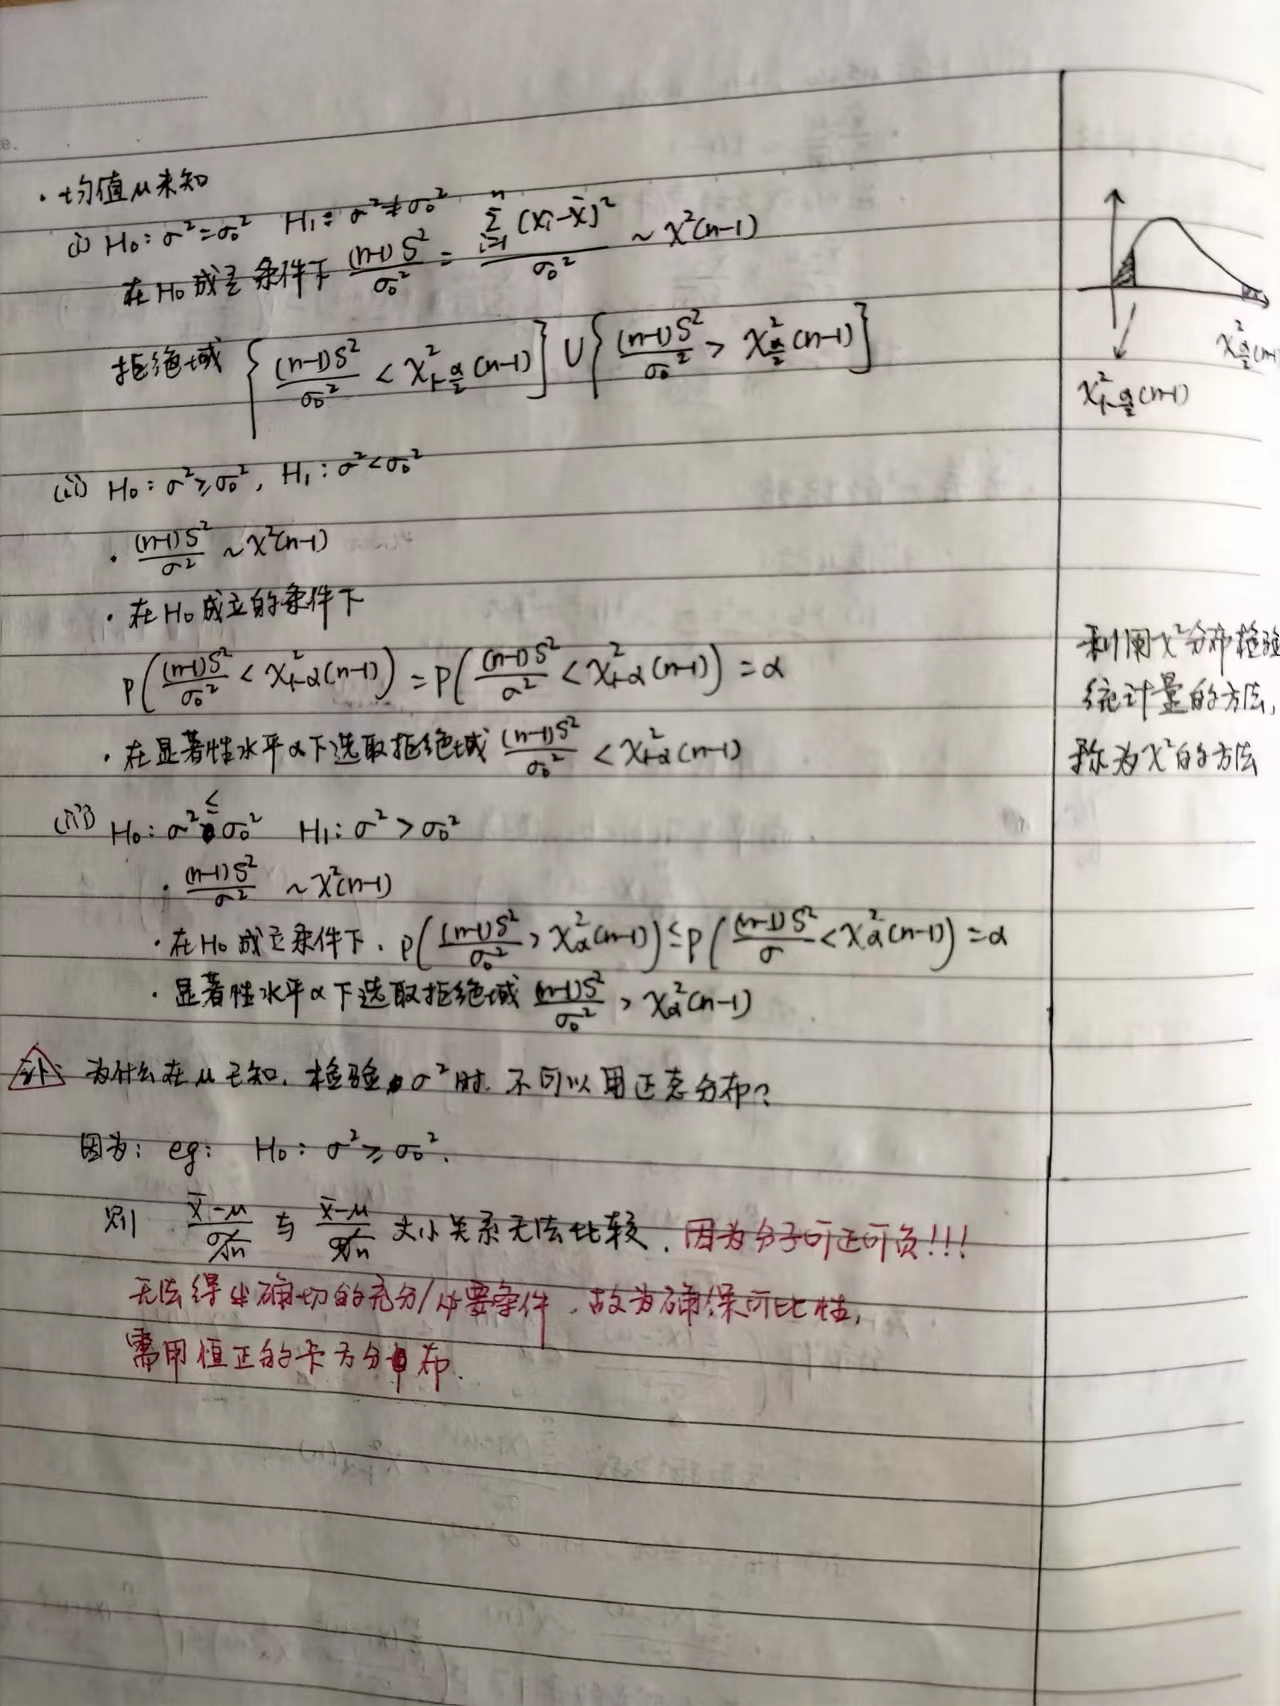 · 均值μ未知
(i) H₀: σ²=σ₀² H₁: σ²≠σ₀²
在H₀成立条件下 (n-1)S²/σ₀² = Σᵢ₌₁ⁿ(xᵢ-x̄)²/σ₀² ~ χ²(n-1)
拒绝域 {(n-1)S²/σ₀² < χ²_{1-α/2}(n-1)} ∪ {(n-1)S²/σ₀² > χ²_{α/2}(n-1)}
χ²_{α/2}(n-1)
χ²_{1-α/2}(n-1)
(ii) H₀: σ²≥σ₀², H₁: σ²<σ₀²
· (n-1)S²/σ² ~ χ²(n-1)
· 在H₀成立的条件下
P((n-1)S²/σ₀² < χ²_{1-α}(n-1)) = P((n-1)S²/σ² < χ²_{1-α}(n-1)) = α
· 在显著性水平α下选取拒绝域 (n-1)S²/σ₀² < χ²_{1-α}(n-1)
利用χ²分布检验
统计量的方法,
称为χ²的方法
(iii) H₀: σ²≤σ₀² H₁: σ²>σ₀²
· (n-1)S²/σ² ~ χ²(n-1)
· 在H₀成立条件下. P((n-1)S²/σ₀² > χ²_α(n-1)) ≤ P((n-1)S²/σ < χ²_α(n-1)) = α
· 显著性水平α下选取拒绝域 (n-1)S²/σ₀² > χ²_α(n-1)
补: 为什么在μ已知. 检验σ²时. 不可以用正态分布?
因为: eg: H₀: σ²≥σ₀².
则 (x̄-μ)/(σ/√n) 与 (x̄-μ)/(σ/√n) 大小关系无法比较. 因为分子可正可负!!!
无法得出确切的充分/必要条件. 故为确保可比性,
需用恒正的卡方分布.